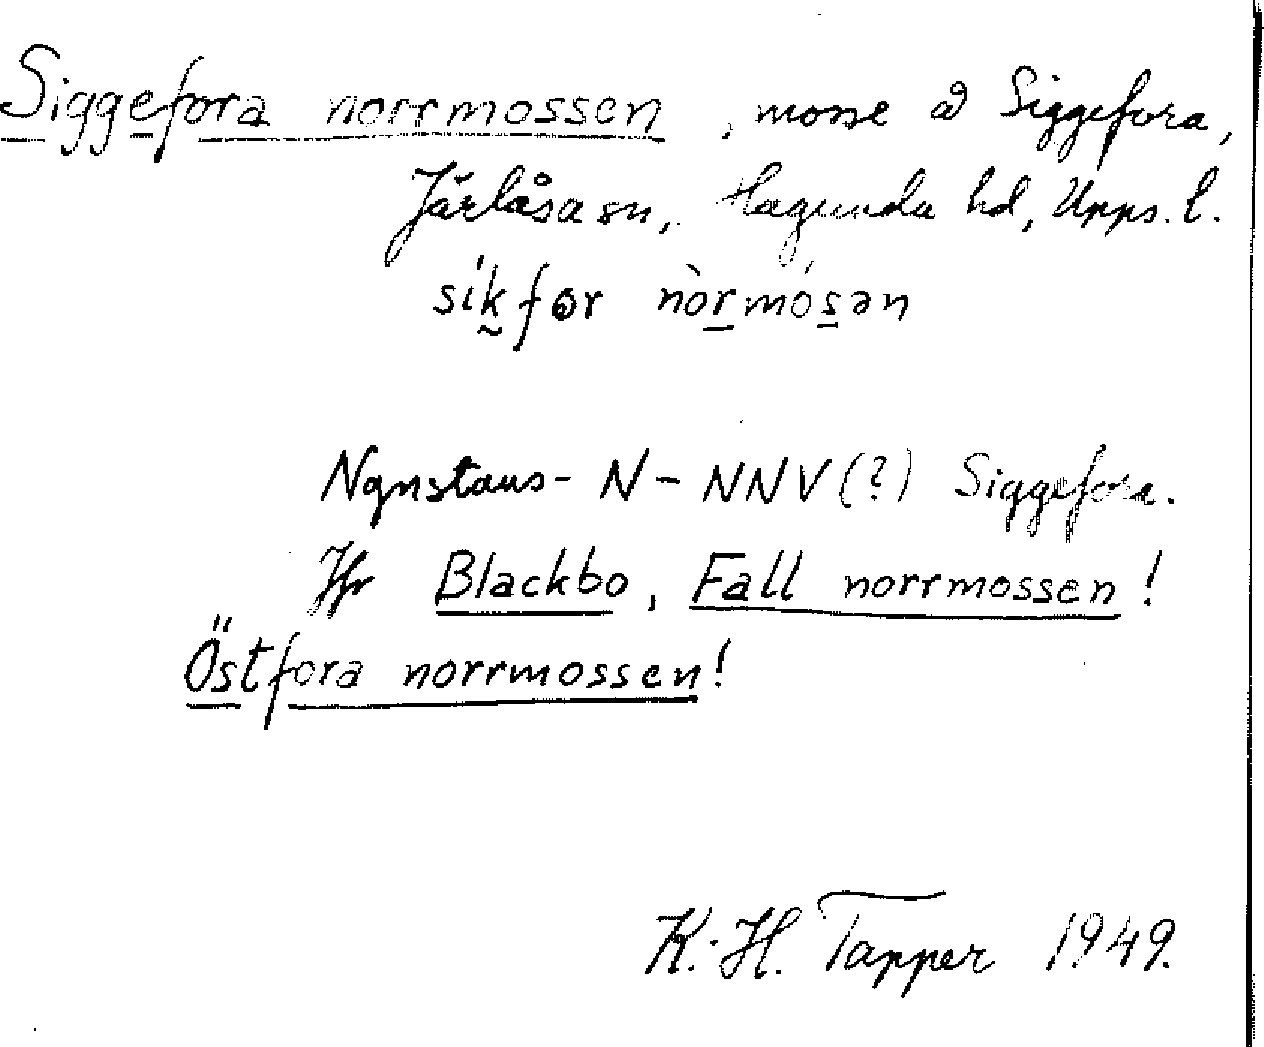 Siggefora norrmossen, mosse å Siggefora,
Järlåsa sn, Hagunda hd, Upps. l.
Ngnstans - N - NNV (?) Siggefora.
Jfr Blackbo, Fall norrmossen!
Östfora norrmossen!
K.-H. Tapper 1949.